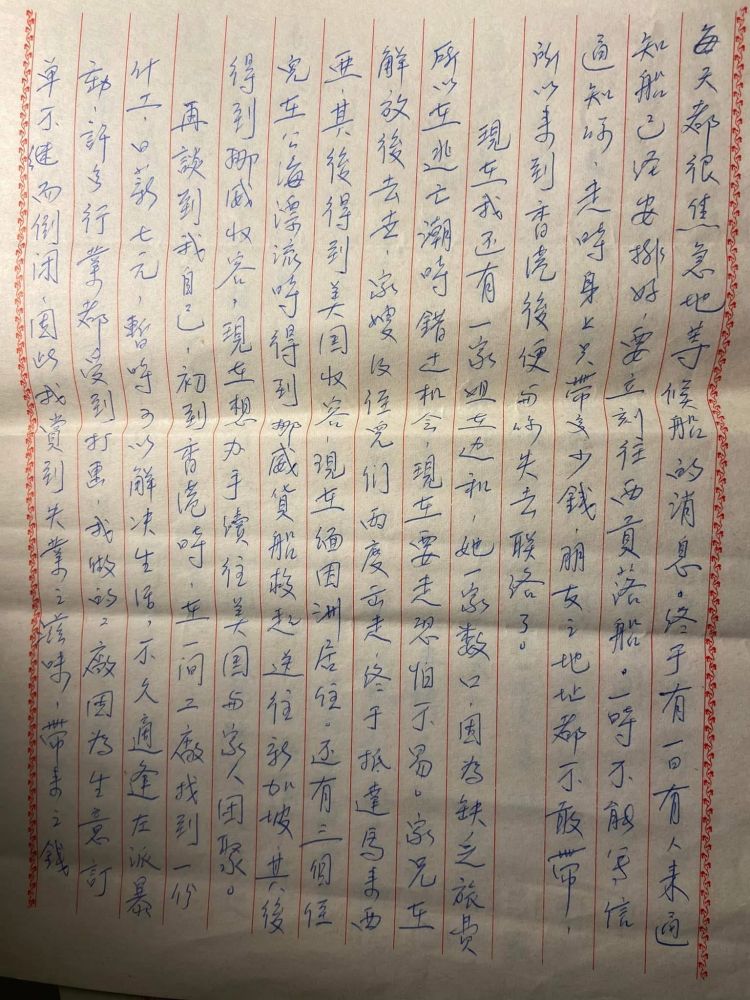 每天都很焦急地等候船的消息。终于有一日有人来通
知船已经安排好，要立刻往西貢落船。一時不能写信
通知你，走時身上只帶支少錢，朋友之地址都不敢帶，
所以来到香港後便与你失去联络了。
現在我还有一家姐在边和，她一家数口，因為缺乏旅費
所以在逃亡潮時錯过机会，現在要走恐怕不易。家兄在
解放後去世，家嫂及侄児们两度出走，终于抵達馬来西
亚，其後得到美国收容，現在缅因洲居住。还有三個侄
児在公海漂流時得到挪威貨船救起送往新加坡其後
得到挪威收容，現在想办手续往美国与家人团聚。
再談到我自己，初到香港時，在一间工廠找到一份
什工，日薪七元，暫時可以解决生活，不久適逢左派暴
動，許多行業都受到打击，我做的工廠因為生意訂
单不继而倒闭，因此我賞到失業之滋味，帶来之錢